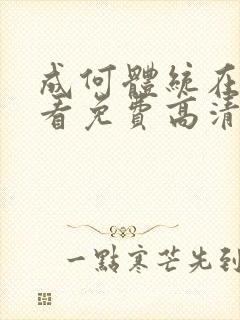 成何體統在
看免費高清
一點寒芒先到